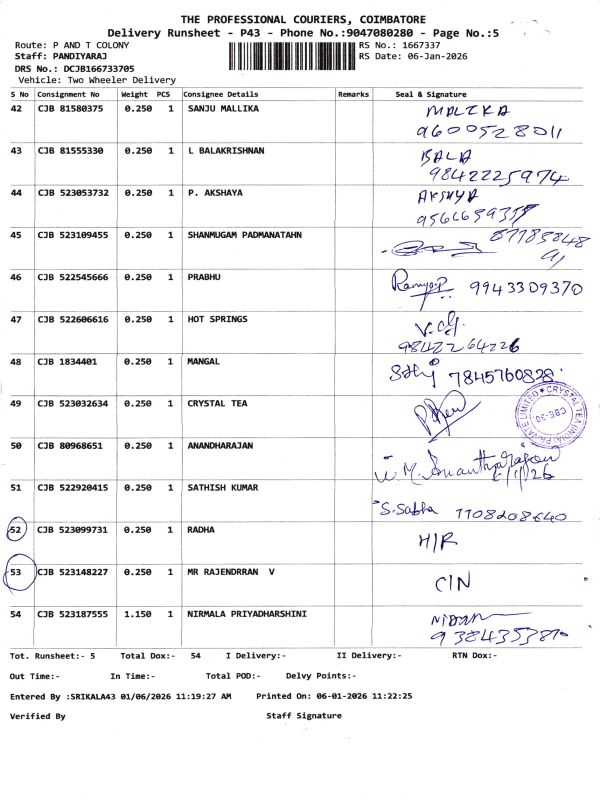 THE PROFESSIONAL COURIERS, COIMBATORE
Delivery Runsheet - P43 - Phone No.:9047080280 - Page No.:5
Route: P AND T COLONY
RS No.: 1667337
Staff: PANDIYARAJ
RS Date: 06-Jan-2026
DRS No.: DCJB166733705
Vehicle: Two Wheeler Delivery
S No Consignment No Weight PCS Consignee Details Remarks Seal & Signature
42 CJB 81580375 0.250 1 SANJU MALLIKA MALIKA
9600528011
43 CJB 81555330 0.250 1 L BALAKRISHNAN BALA
9842225974
44 CJB 523053732 0.250 1 P. AKSHAYA AKSHYA
45 CJB 523109455 0.250 1 SHANMUGAM PADMANATAHN
46 CJB 522545666 0.250 1 PRABHU 9943309370
47 CJB 522606616 0.250 1 HOT SPRINGS
9842264226
48 CJB 1834401 0.250 1 MANGAL 7845760828
49 CJB 523032634 0.250 1 CRYSTAL TEA
CRYSTAL TEA INDIA PRIVATE LIMITED
CBE-30
50 CJB 80968651 0.250 1 ANANDHARAJAN
6/1/26
51 CJB 522920415 0.250 1 SATHISH KUMAR S. Sabha 7708208640
52 CJB 523099731 0.250 1 RADHA H/R
53 CJB 523148227 0.250 1 MR RAJENDRRAN V C/N
54 CJB 523187555 1.150 1 NIRMALA PRIYADHARSHINI
9384353870
Tot. Runsheet:- 5 Total Dox:- 54 I Delivery:- II Delivery:- RTN Dox:-
Out Time:- In Time:- Total POD:- Delvy Points:-
Entered By :SRIKALA43 01/06/2026 11:19:27 AM Printed On: 06-01-2026 11:22:25
Verified By Staff Signature